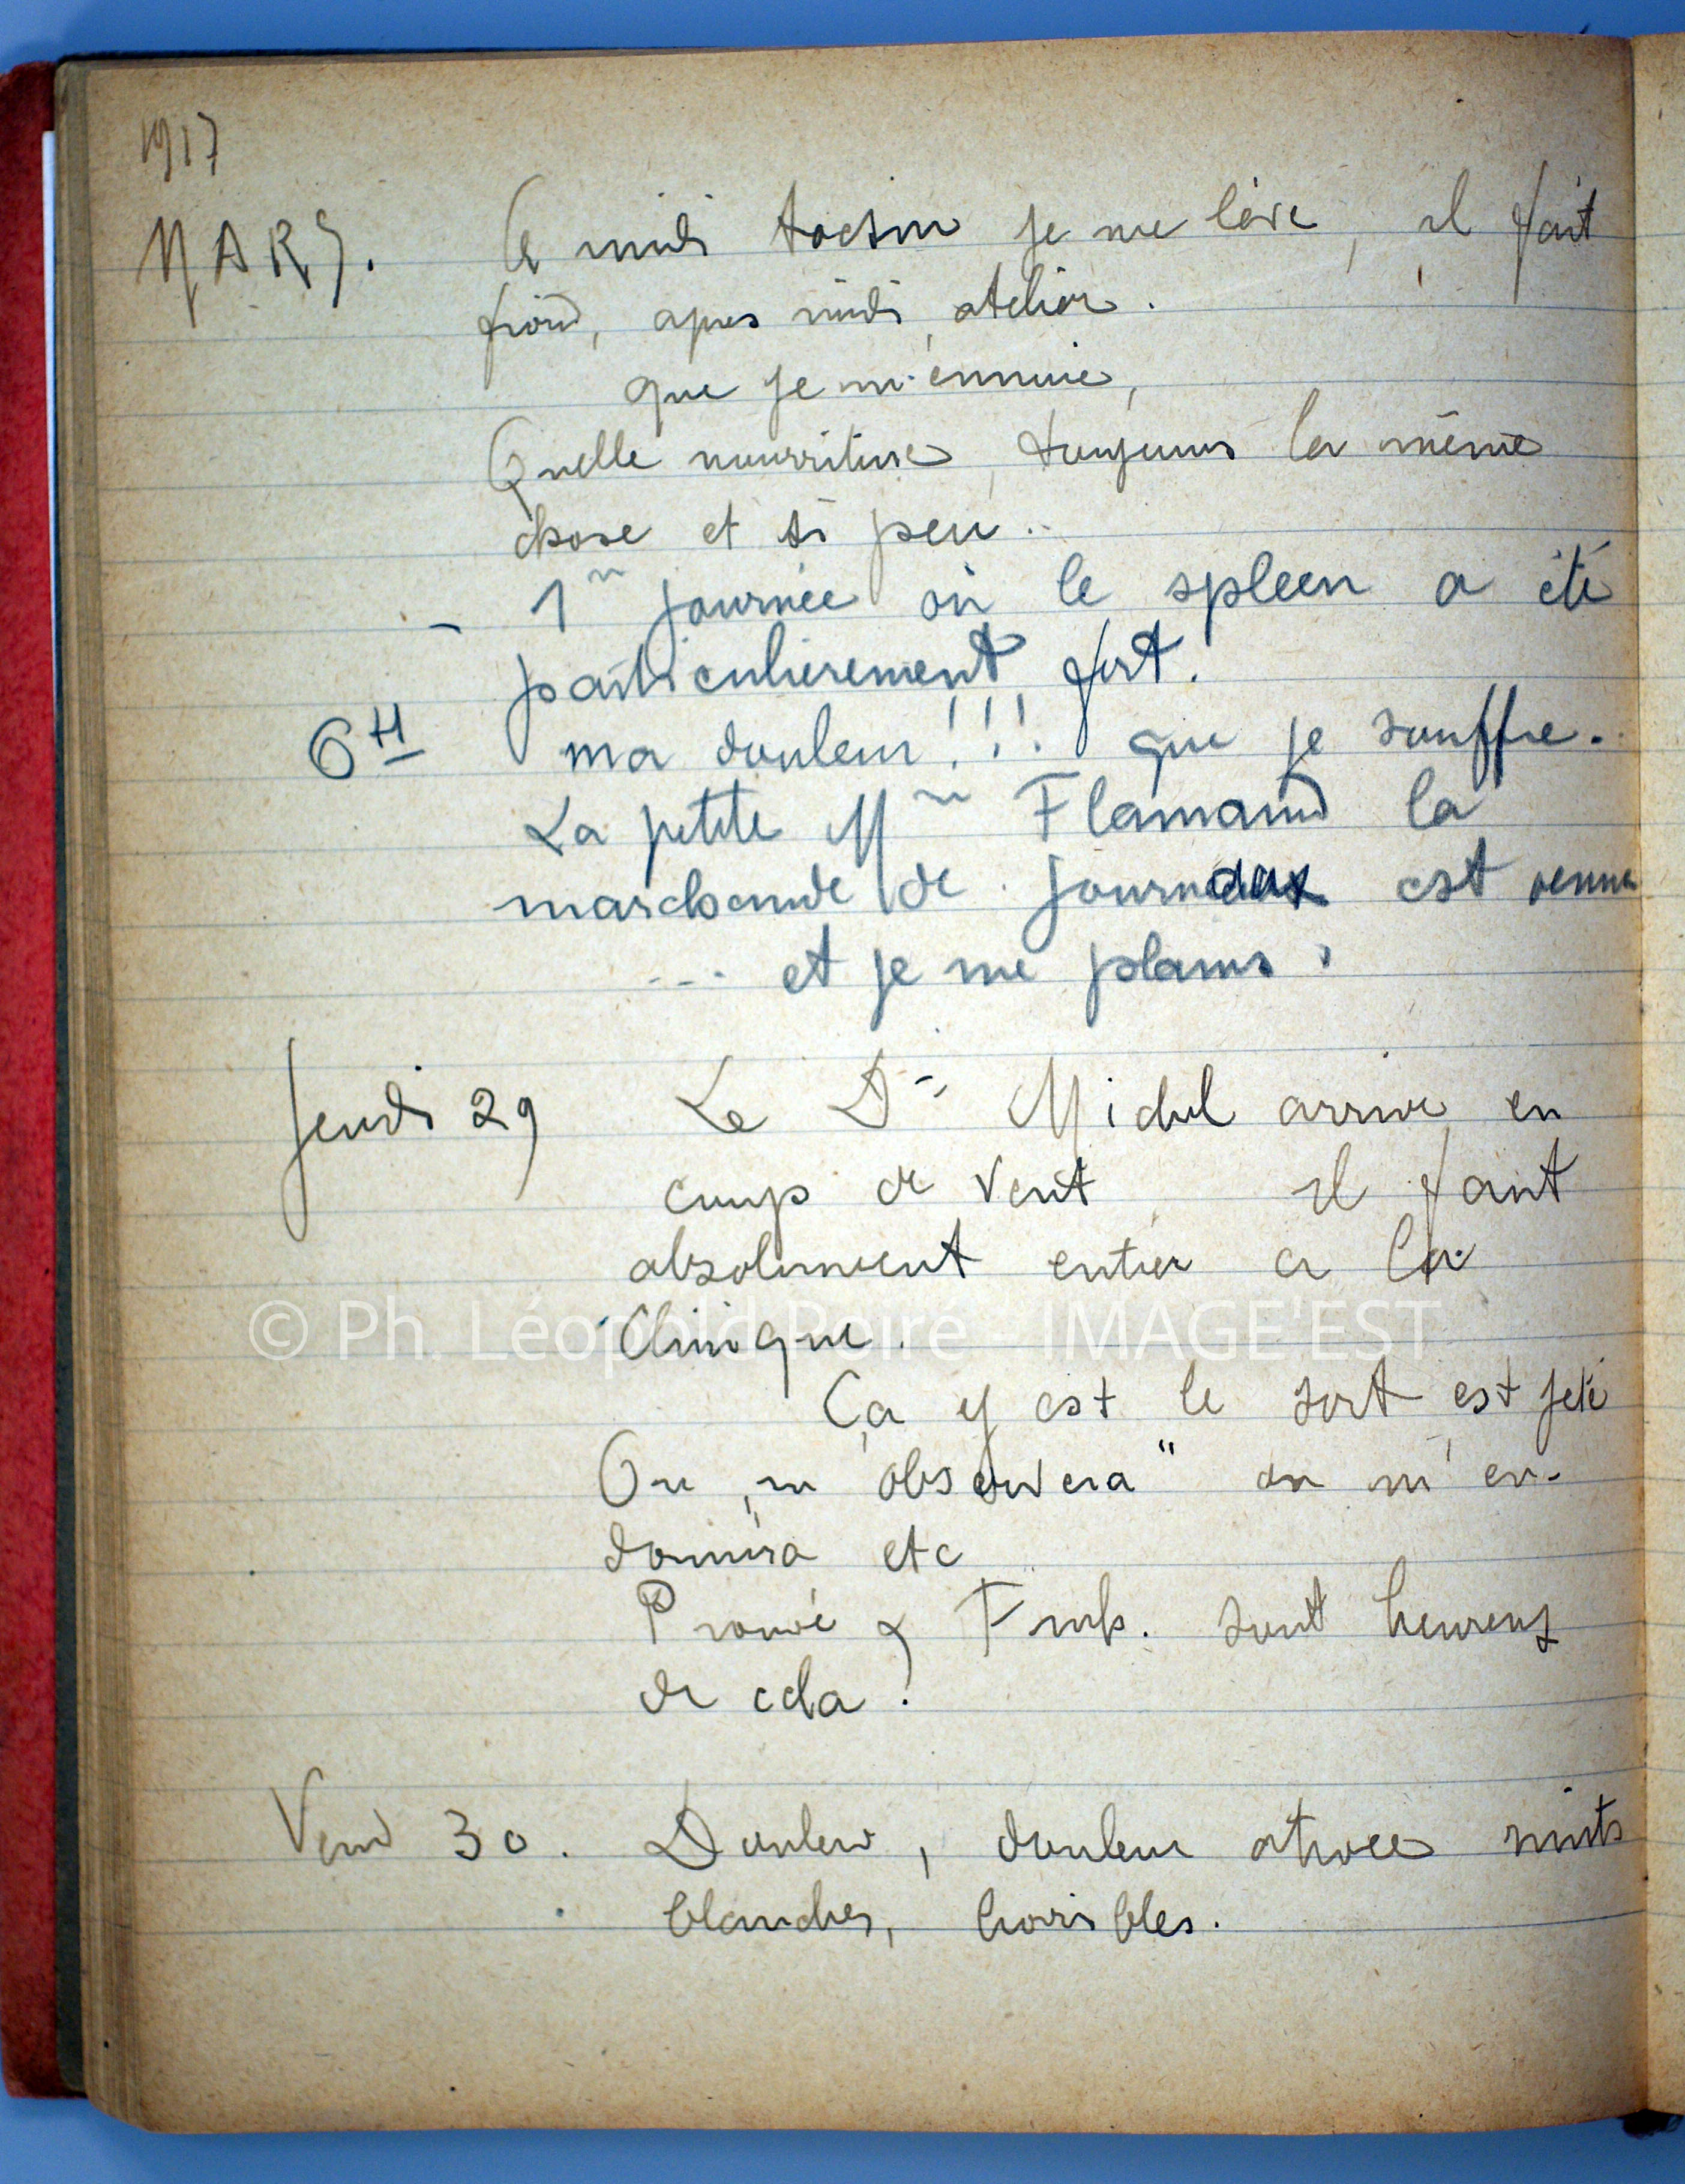 1917
MARS. A midi tocsin je me lève, il fait
froid, apres midi, atelier.
que je m'ennuie,
Quelle nourriture, toujours la même
chose et si peu..
- 1re journée où le spleen a été
particulierement fort.
6H ma douleur!!! que je souffre.
La petite Mme Flamand la
marchande de journaux est venue
... et je me plains.
Jeudi 29 Le Dr Michel arrive en
coup de vent il faut
absolument entrer a la
© Ph. Léopold Poiré - IMAGE'EST
Clinique.
Ça y est le sort est jeté
On "m'observera" on m'en-
dormira etc
Prouvé & Fruh. sont heureux
de cela.
Vend 30. Douleur, douleur atroce nuits
blanches, horribles.